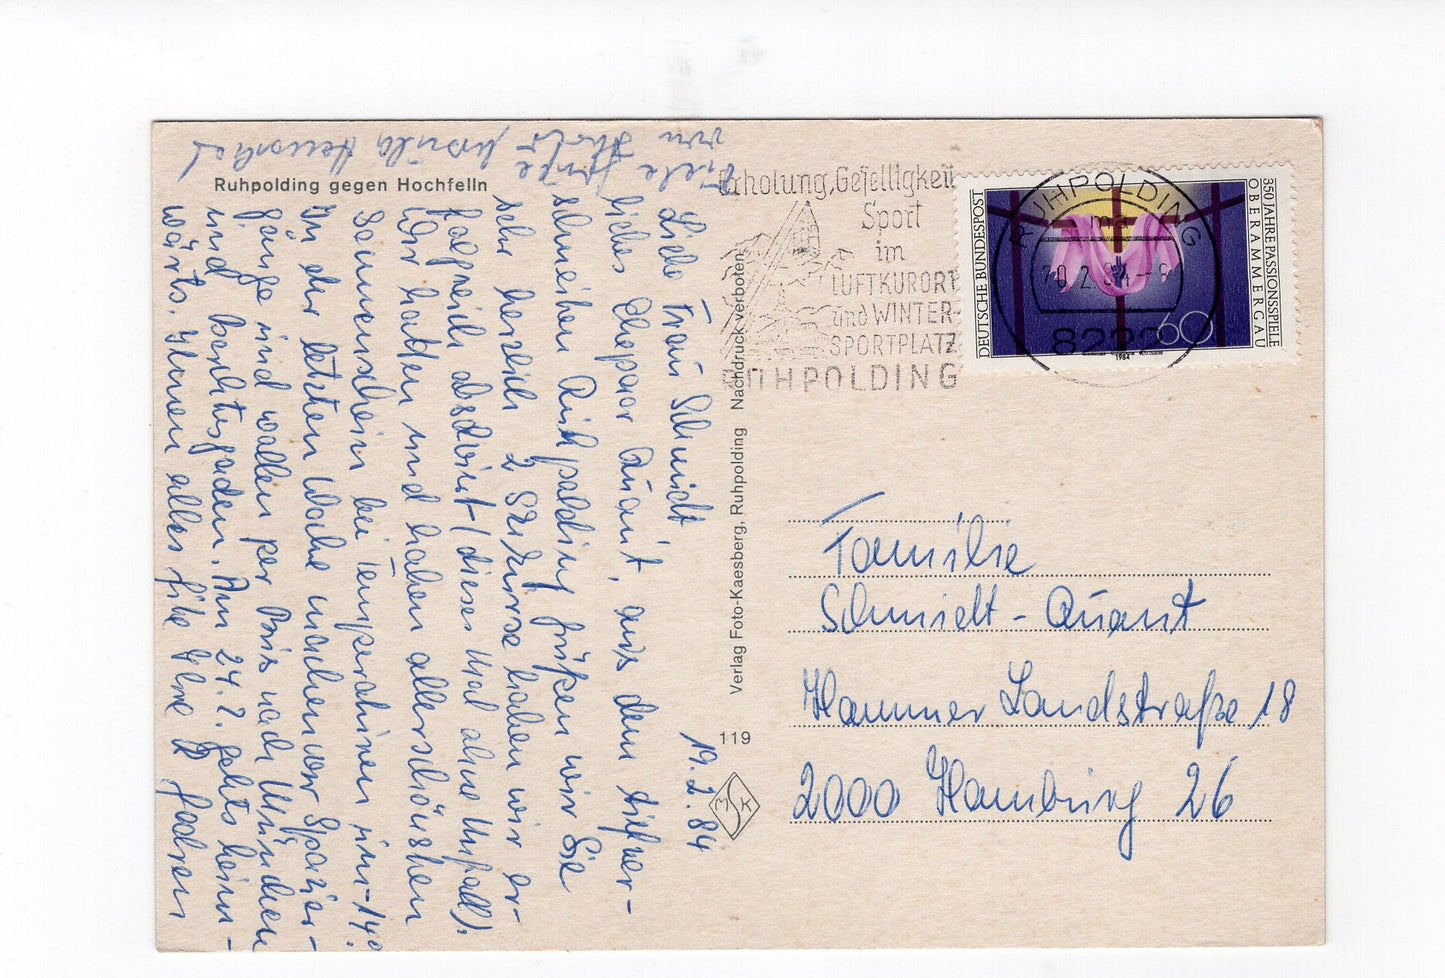 Ruhpolding gegen Hochfelln
19.2.84
Liebe Frau Schmidt
liebes Ehepaar Quant, aus dem tiefver-
schneiten Ruhpolding grüßen wir Sie
sehr herzlich. 2 Skikurse haben wir er-
folgreich absolviert (dieses Mal ohne Unfall).
Wir hatten und haben allerschönsten
Sonnenschein bei Temperaturen um -14°.
In der letzten Woche machen wir Spazier-
gänge und wollen per Bus nach München
und Berchtesgaden. Am 24.2. gehts heim-
wärts. Ihnen alles Gute Ihre
Viele Grüße
von Ursula
Verlag Foto-Kaesberg, Ruhpolding Nachdruck verboten
119
MSK
Erholung, Geselligkeit
Sport
im
LUFTKURORT
und WINTER-
SPORTPLATZ
RUHPOLDING
RUHPOLDING
20.2.84-8
8222
DEUTSCHE BUNDESPOST
350 JAHRE PASSIONSSPIELE
OBERAMMERGAU
60
1984
Familie
Schmidt-Quant
Hammer Landstraße 18
2000 Hamburg 26